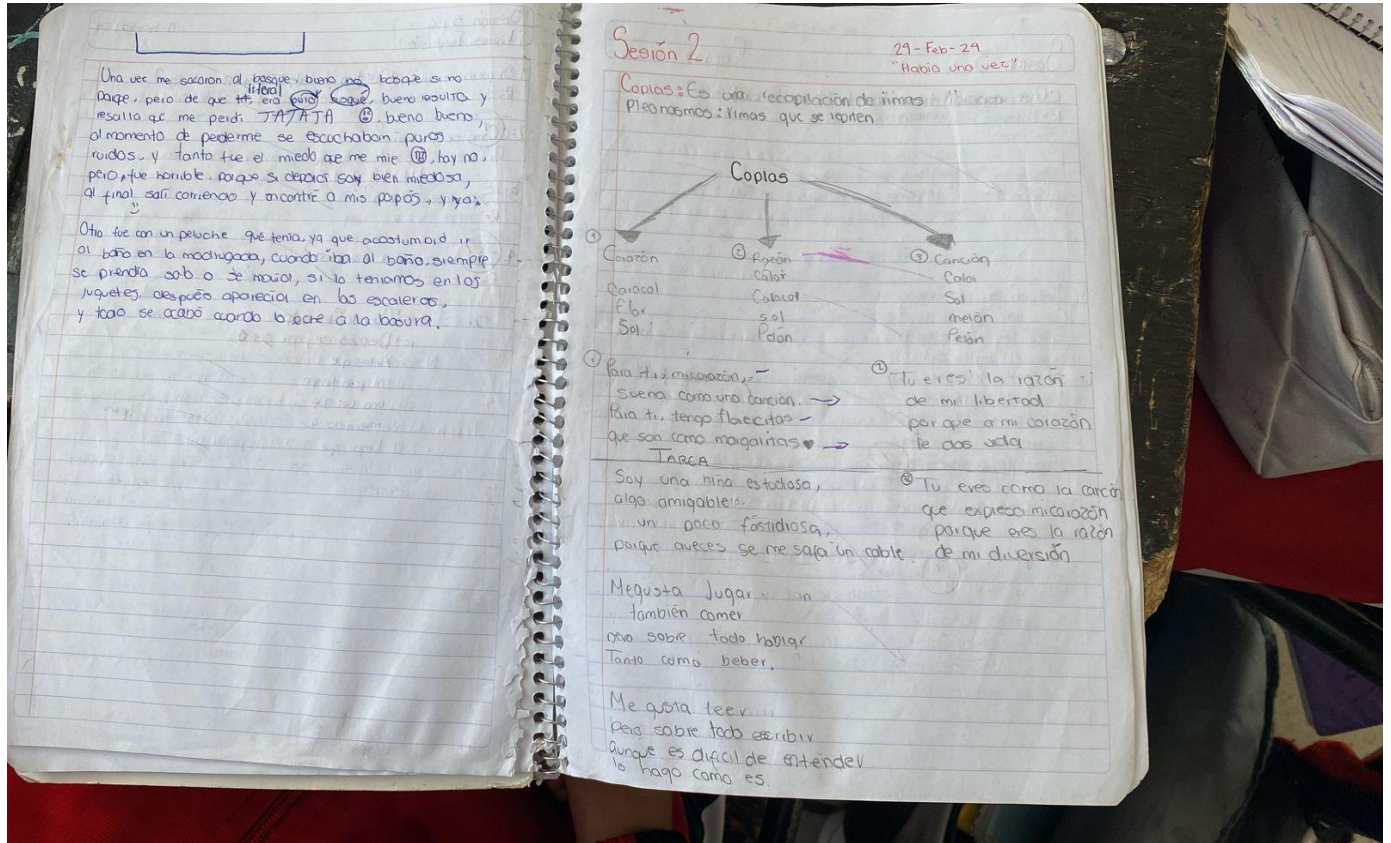 Una vez me sacaron al bosque, bueno no bosque si no
parque, pero de que literal era puro boque, bueno resulta y
resulta qe me perdi JAJAJA, bueno bueno,
al momento de perderme se escuchaban puros
ruidos, y tanto fue el miedo qe me mie, hay no,
pero, fue horrible, porque si depors soy bien miedosa,
al final sali corriendo y encontré a mis papás, y ya
Otro fue con un peluche que tenia, ya que acostumbro ir
al baño en la madrugada, cuando iba al baño, siempre
se prendia solo o se movia, si lo teniamos en los
juguetes, después aparecia en las escaleras,
y todo se acabó cuando lo eche a la basura.
Sesión 2
29-Feb-24
"Habia una vez"
Coplas: Es una recopilación de rimas
Pleonasmos: rimas que se repiten
Coplas
① Corazón
Caracol
flor
Sol
② Razón
Calor
Caracol
sol
Pelón
③ Canción
Calor
Sol
melón
Pelón
① Para ti, mi corazón,
suena como una canción.
Para ti, tengo florecitas
que son como margaritas
② Tu eres la razón
de mi libertad
por que a mi corazón
le das vida
TAREA
Soy una niña estudiosa,
algo amigable
un poco fastidiosa,
porque aveces se me safa un cable.
③ Tu eres como la canción
que expresa mi corazón
porque eres la razón
de mi diversión
Megusta Jugar
también comer
pero sobre todo hablar
Tanto como beber.
Me gusta leer
pero sobre todo escribir
aunque es dificil de entender
lo hago como es.